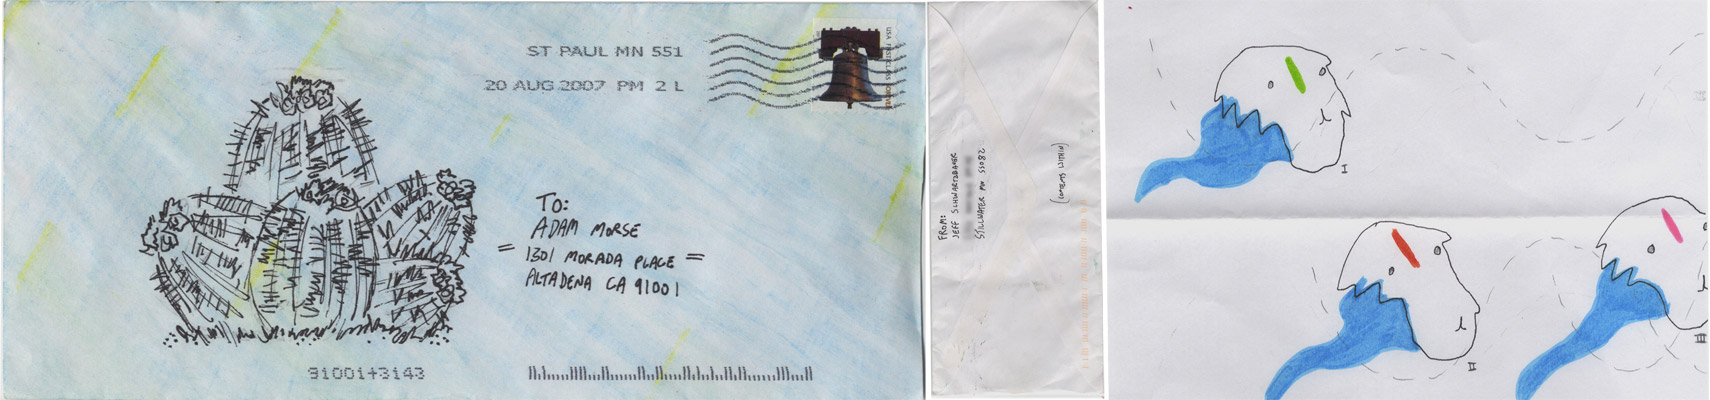 ST PAUL MN 551
20 AUG 2007 PM 2 L
USA FIRST-CLASS FOREVER
TO:
ADAM MORSE
= 1301 MORADA PLACE =
ALTADENA CA 91001
91001+3143
FROM:
JEFF SCHWARTZBAUER
STILLWATER MN 55082
(CONTENTS WITHIN)
I
II
III